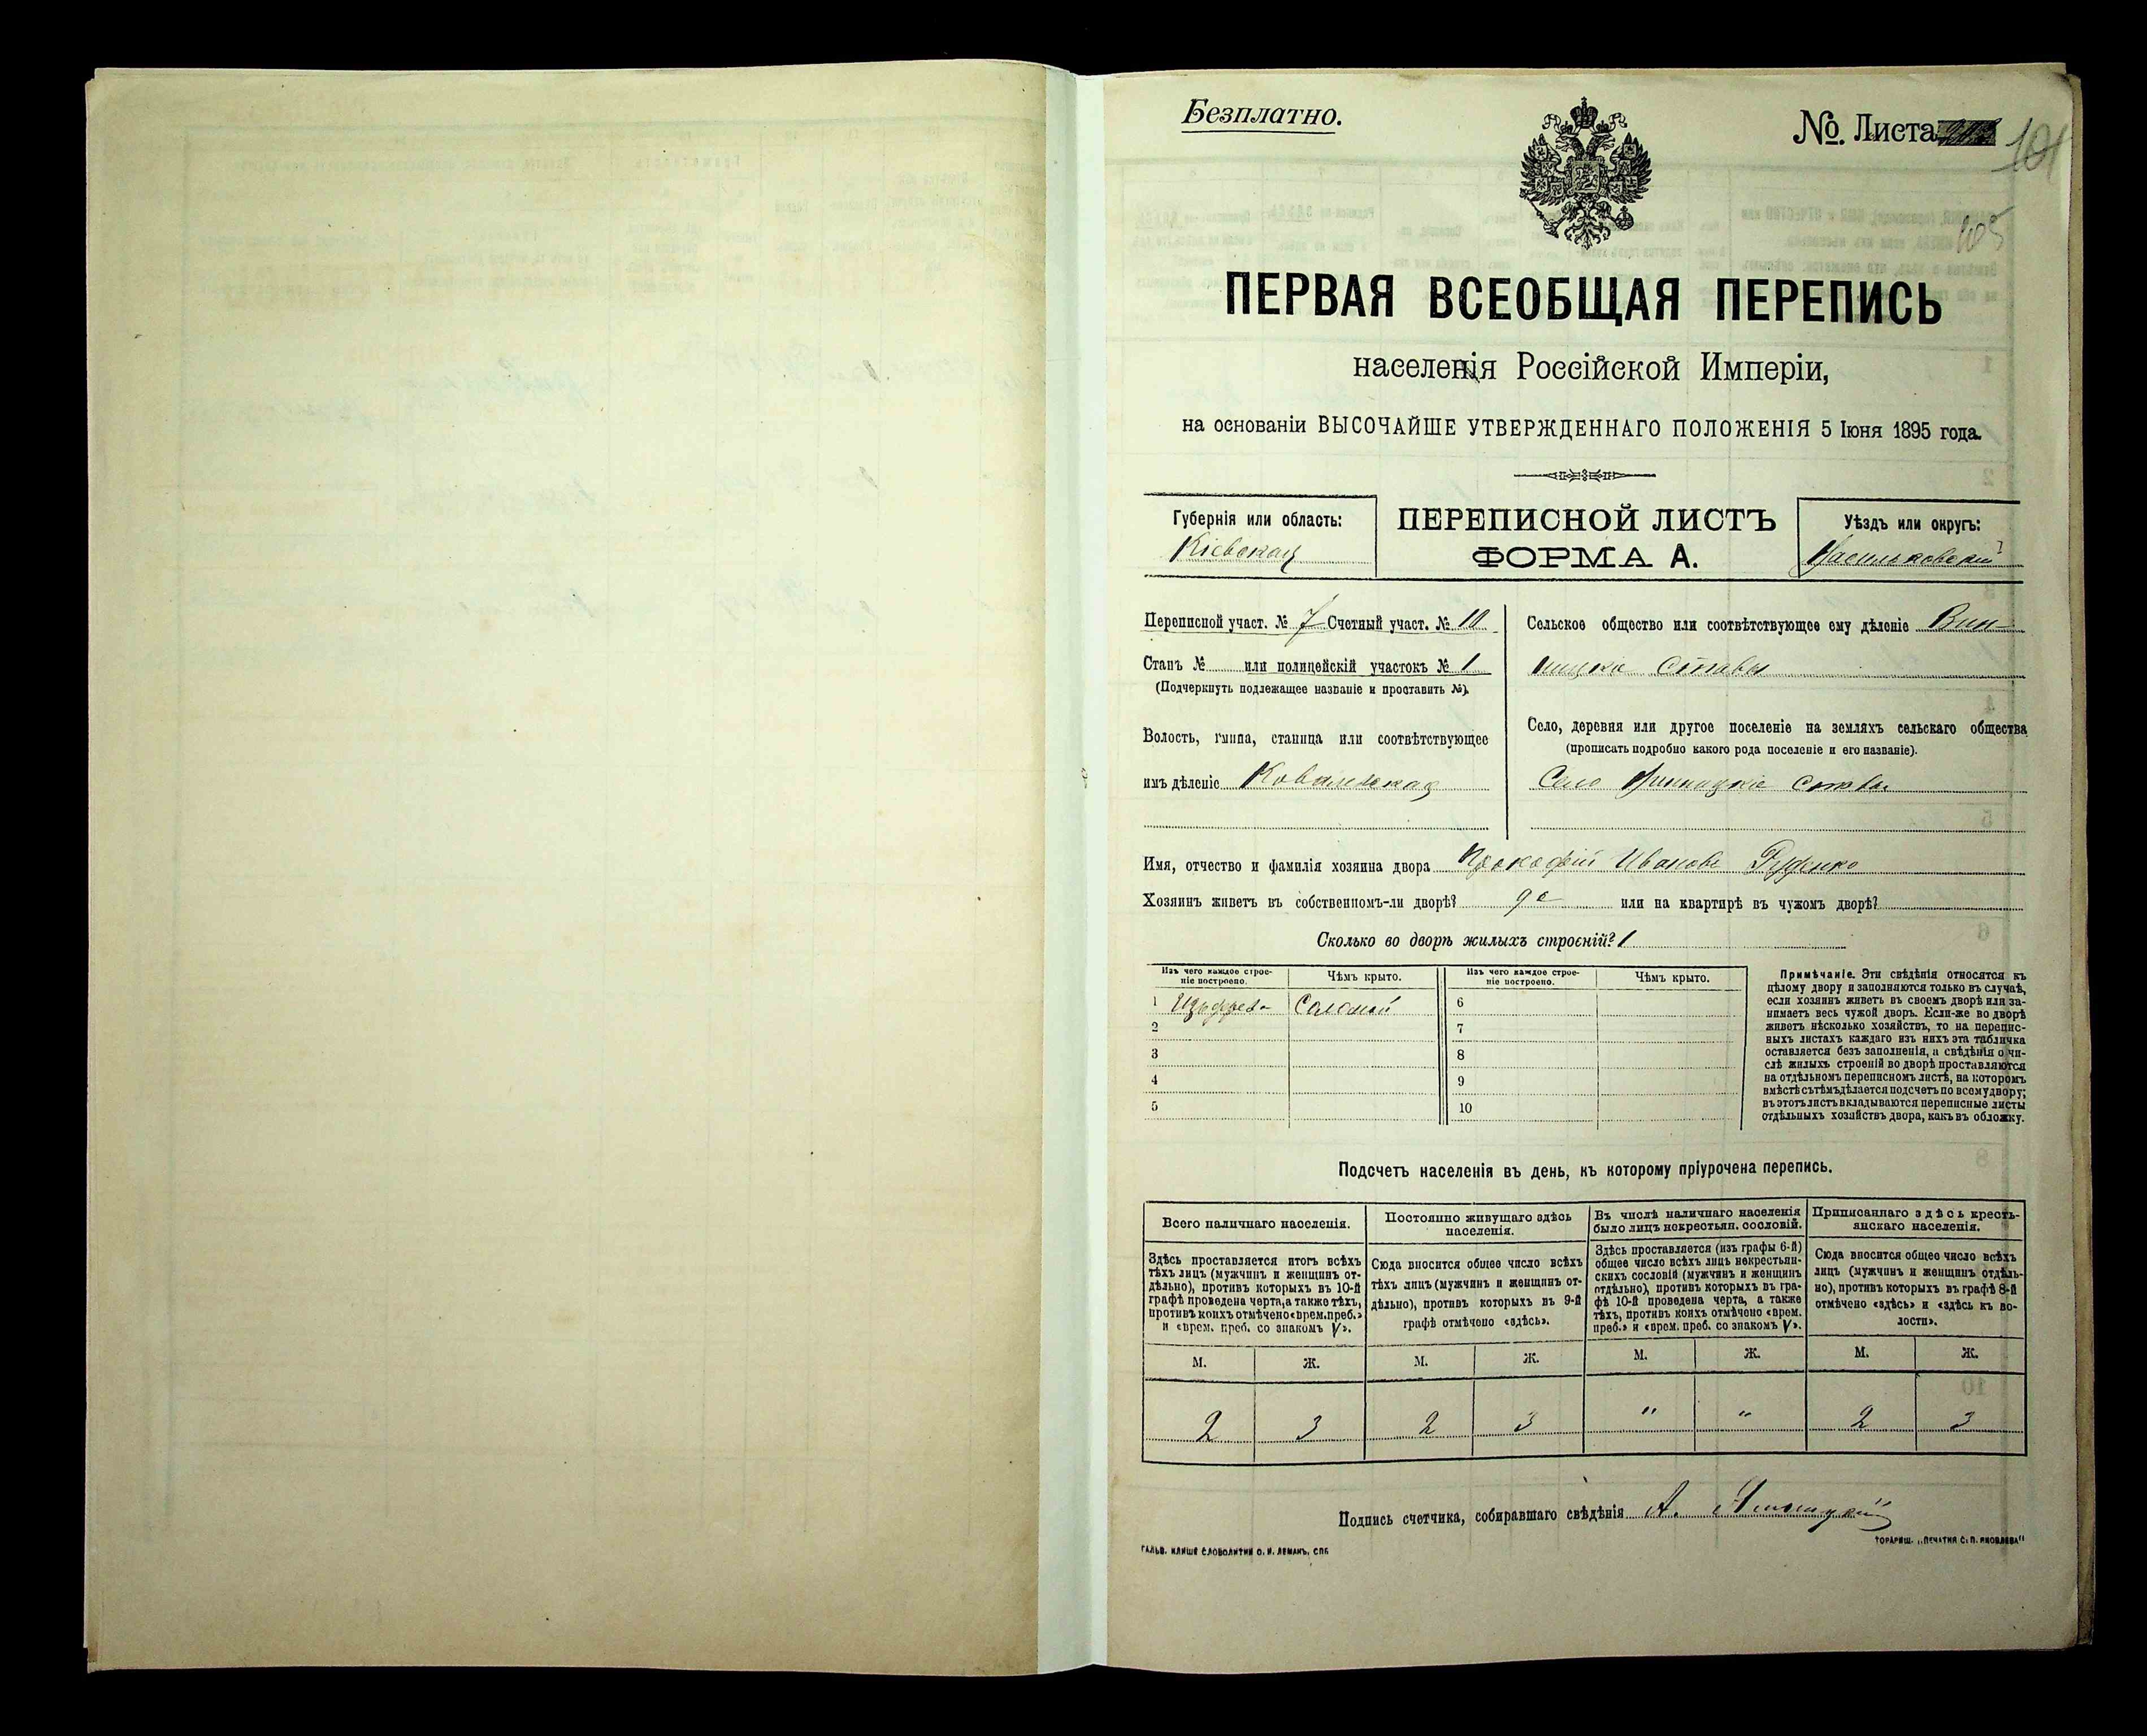 Безплатно.
№. Листа
101
105
ПЕРВАЯ ВСЕОБЩАЯ ПЕРЕПИСЬ
населенія Россійской Имперіи,
на основаніи ВЫСОЧАЙШЕ УТВЕРЖДЕННАГО ПОЛОЖЕНІЯ 5 Іюня 1895 года.
Губернія или область:
Кіевская
ПЕРЕПИСНОЙ ЛИСТЪ
ФОРМА А.
Уѣздъ или округъ:
Васильковскій
Переписной участ. № 7 Счетный участ. № 10
Станъ № или полицейскій участокъ № 1
(Подчеркнуть подлежащее названіе и проставить №).
Волость, гмина, станица или соотвѣтствующее
имъ дѣленіе Ковалевская
Сельское общество или соотвѣтствующее ему дѣленіе Вин-
ницкіе Ставы
Село, деревня или другое поселеніе на земляхъ сельскаго общества
(прописать подробно какого рода поселеніе и его названіе).
Село Винницкіе Ставы
Имя, отчество и фамилія хозяина двора Прокофій Ивановъ Руденко
Хозяинъ живетъ въ собственномъ-ли дворѣ? да или на квартирѣ въ чужомъ дворѣ?
Сколько во дворѣ жилыхъ строеній? 1
Изъ чего каждое строе-
ніе построено.
Чѣмъ крыто.
Изъ чего каждое строе-
ніе построено.
Чѣмъ крыто.
1 Изъ дерева Соломой 6
2 7
3 8
4 9
5 10
Примѣчаніе. Эти свѣдѣнія относятся къ
цѣлому двору и заполняются только въ случаѣ,
если хозяинъ живетъ въ своемъ дворѣ или за-
нимаетъ весь чужой дворъ. Если-же во дворѣ
живетъ нѣсколько хозяйствъ, то на перепис-
ныхъ листахъ каждаго изъ нихъ эта табличка
оставляется безъ заполненія, а свѣдѣнія о чи-
слѣ жилыхъ строеній во дворѣ проставляются
на отдѣльномъ переписномъ листѣ, на которомъ
вмѣстѣ съ тѣмъ дѣлается подсчетъ по всему двору;
въ этотъ листъ вкладываются переписные листы
отдѣльныхъ хозяйствъ двора, какъ въ обложку.
Подсчетъ населенія въ день, къ которому пріурочена перепись.
Всего наличнаго населенія.
Здѣсь проставляется итогъ всѣхъ
тѣхъ лицъ (мужчинъ и женщинъ от-
дѣльно), противъ которыхъ въ 10-й
графѣ проведена черта, а также тѣхъ,
противъ коихъ отмѣчено «врем. преб.»
и «врем. преб. со знакомъ V».
Постоянно живущаго здѣсь
населенія.
Сюда вносится общее число всѣхъ
тѣхъ лицъ (мужчинъ и женщинъ от-
дѣльно), противъ которыхъ въ 9-й
графѣ отмѣчено «здѣсь».
Въ числѣ наличнаго населенія
было лицъ некрестьян. сословій.
Здѣсь проставляется (изъ графы 6-й)
общее число всѣхъ лицъ некрестьян-
скихъ сословій (мужчинъ и женщинъ
отдѣльно), противъ которыхъ въ гра-
фѣ 10-й проведена черта, а также
тѣхъ, противъ коихъ отмѣчено «врем.
преб.» и «врем. преб. со знакомъ V».
Приписаннаго здѣсь кресть-
янскаго населенія.
Сюда вносится общее число всѣхъ
лицъ (мужчинъ и женщинъ отдѣль-
но), противъ которыхъ въ графѣ 8-й
отмѣчено «здѣсь» и «здѣсь къ во-
лости».
М. Ж. М. Ж. М. Ж. М. Ж.
2 3 2 3 " " 2 3
Подпись счетчика, собиравшаго свѣдѣнія А.
ГАЛЬВ. КЛИШЕ СЛОВОЛИТНИ О. И. ЛЕМАНЪ, СПБ
ТОВАРИЩ. „ПЕЧАТНЯ С. П. ЯКОВЛЕВА"